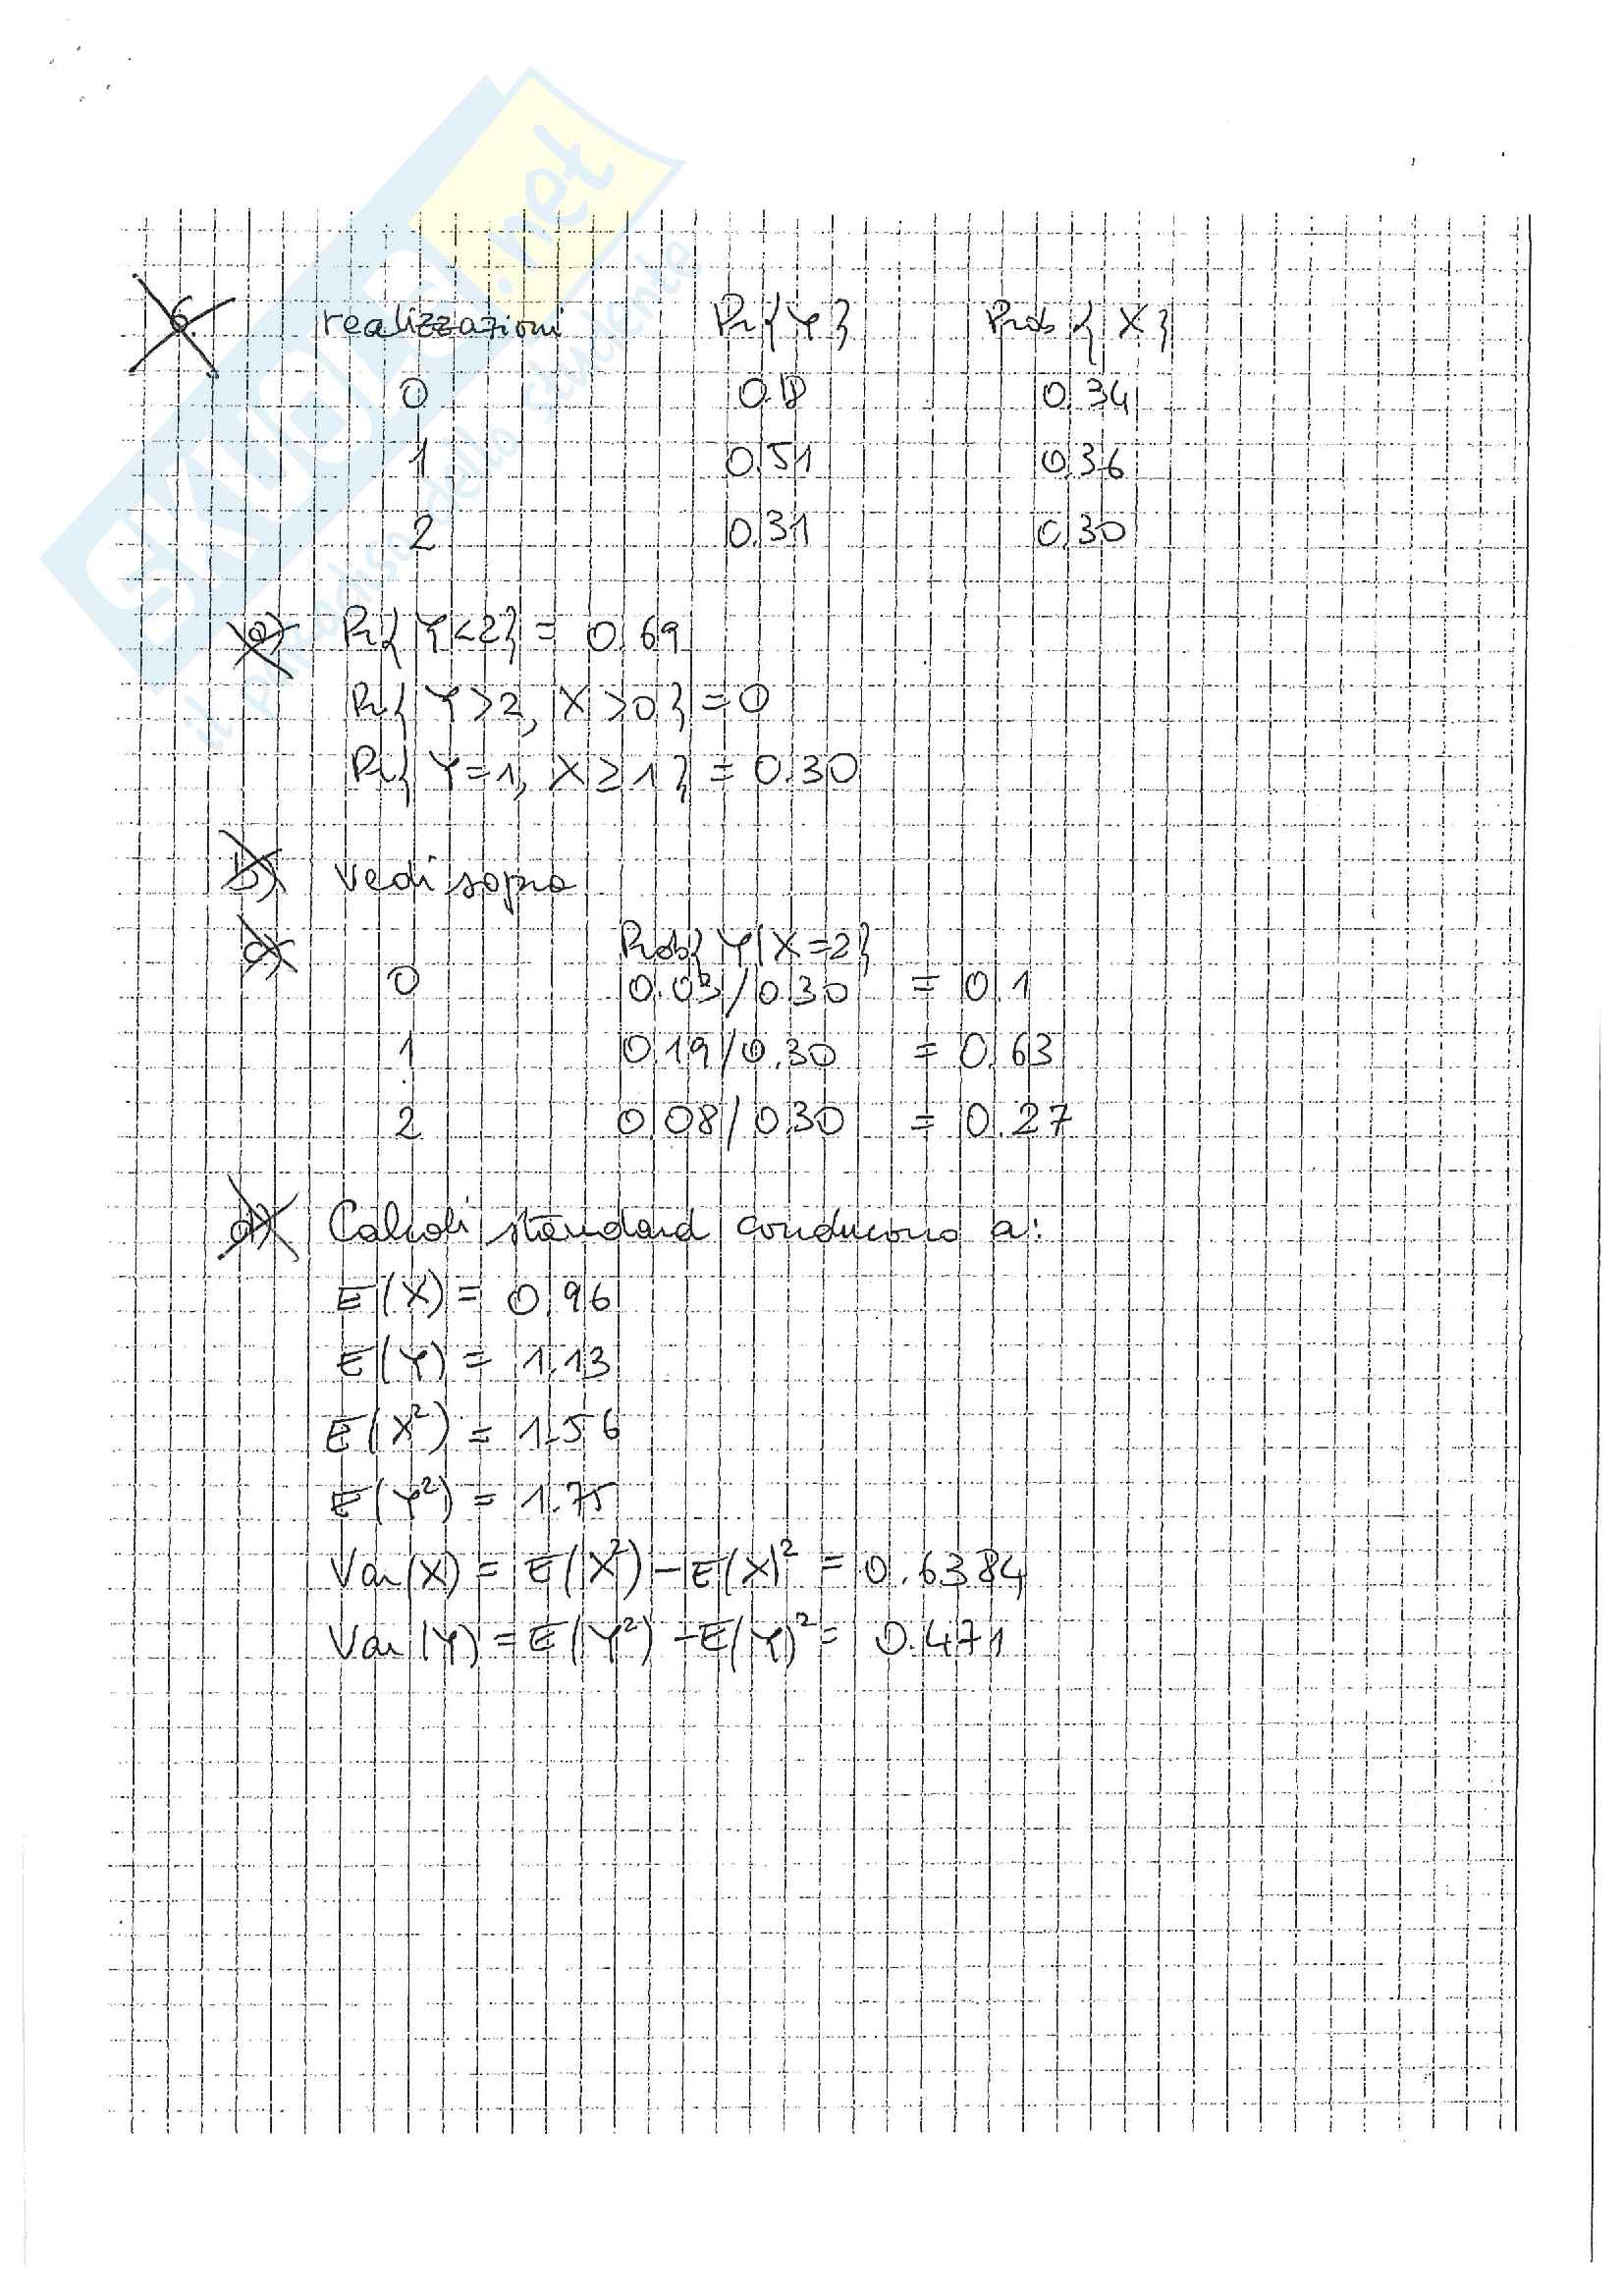 SKUOLA.net
il paradiso dello studente
6. realizzazioni Pr{Y} Prob{X}
0 0.18 0.34
1 0.51 0.36
2 0.31 0.30
a) Pr{Y<2} = 0.69
Pr{Y>2, X>0} = 0
Pr{Y=1, X≥1} = 0.30
b) Vedi sopra
c) Prob{Y|X=2}
0 0.03/0.30 = 0.1
1 0.19/0.30 = 0.63
2 0.08/0.30 = 0.27
d) Calcoli standard conducono a:
E(X) = 0.96
E(Y) = 1.13
E(X²) = 1.56
E(Y²) = 1.75
Var(X) = E(X²) - E(X)² = 0.6384
Var(Y) = E(Y²) - E(Y)² = 0.471